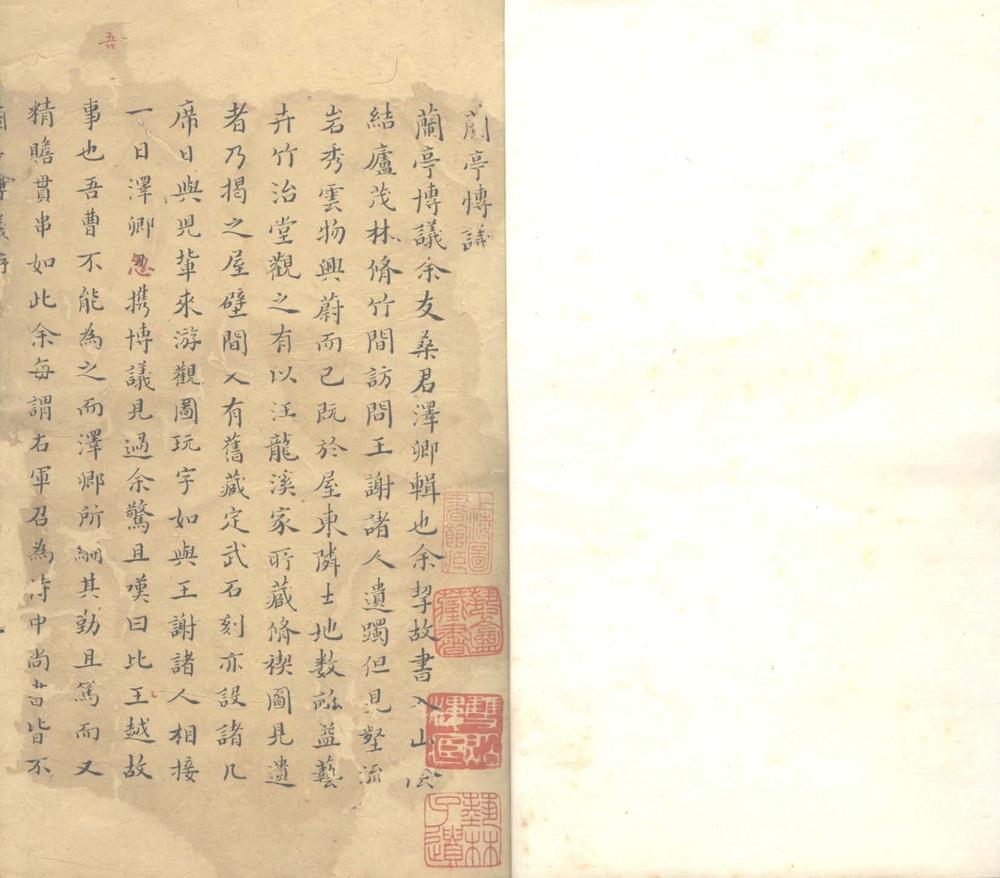 蘭亭博議
蘭亭博議余友桑君澤卿輯也余挈故書入山
結廬茂林脩竹間訪問王謝諸人遺躅但見壑流
岩秀雲物興蔚而已既於屋東隣士地数畝益藝
卉竹治堂觀之有以汪龍溪家所藏脩禊圖見遺
者乃揭之屋壁間又有舊藏定武石刻亦設諸几
席日與兒輩来游觀圖玩字如與王謝諸人相接
一日澤卿忽携博議見過余驚且嘆曰此王越故
事也吾曹不能為之而澤卿所紬其勤且篤而又
精贍貫串如此余每謂右軍召為侍中尚書皆不
吾
上海圖書館臧